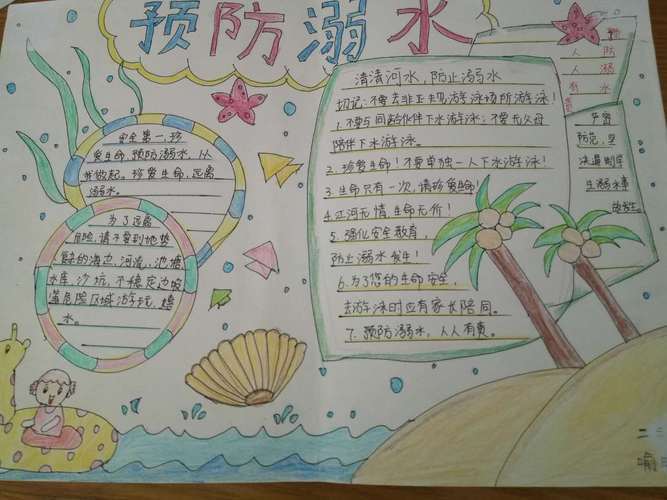 预防溺水
安全第一,珍
爱生命,预防溺水,从
我做起。珍爱生命,远离
溺水。
为了远离
危险,请不要到地势
险的海边,河流,池塘
水库,沙坑,不稳定边坡
等危险区域游玩,嬉
水。
清清河水,防止溺水
切记:不要去非正规游泳场所游泳!
1.不要与同龄伙伴下水游泳;不要无父母
陪伴下水游泳。
2.珍爱生命!不要单独一人下水游泳!
3.生命只有一次,请珍爱生命!
4.江河无情,生命无价!
5.强化安全教育,
防止溺水发生!
6.为了您的生命安全,
去游泳时应有家长陪同。
7.预防溺水,人人有责。
预
防
溺
水
人
人
有
责
防范,坚
决遏制学
生溺水事
故发生。